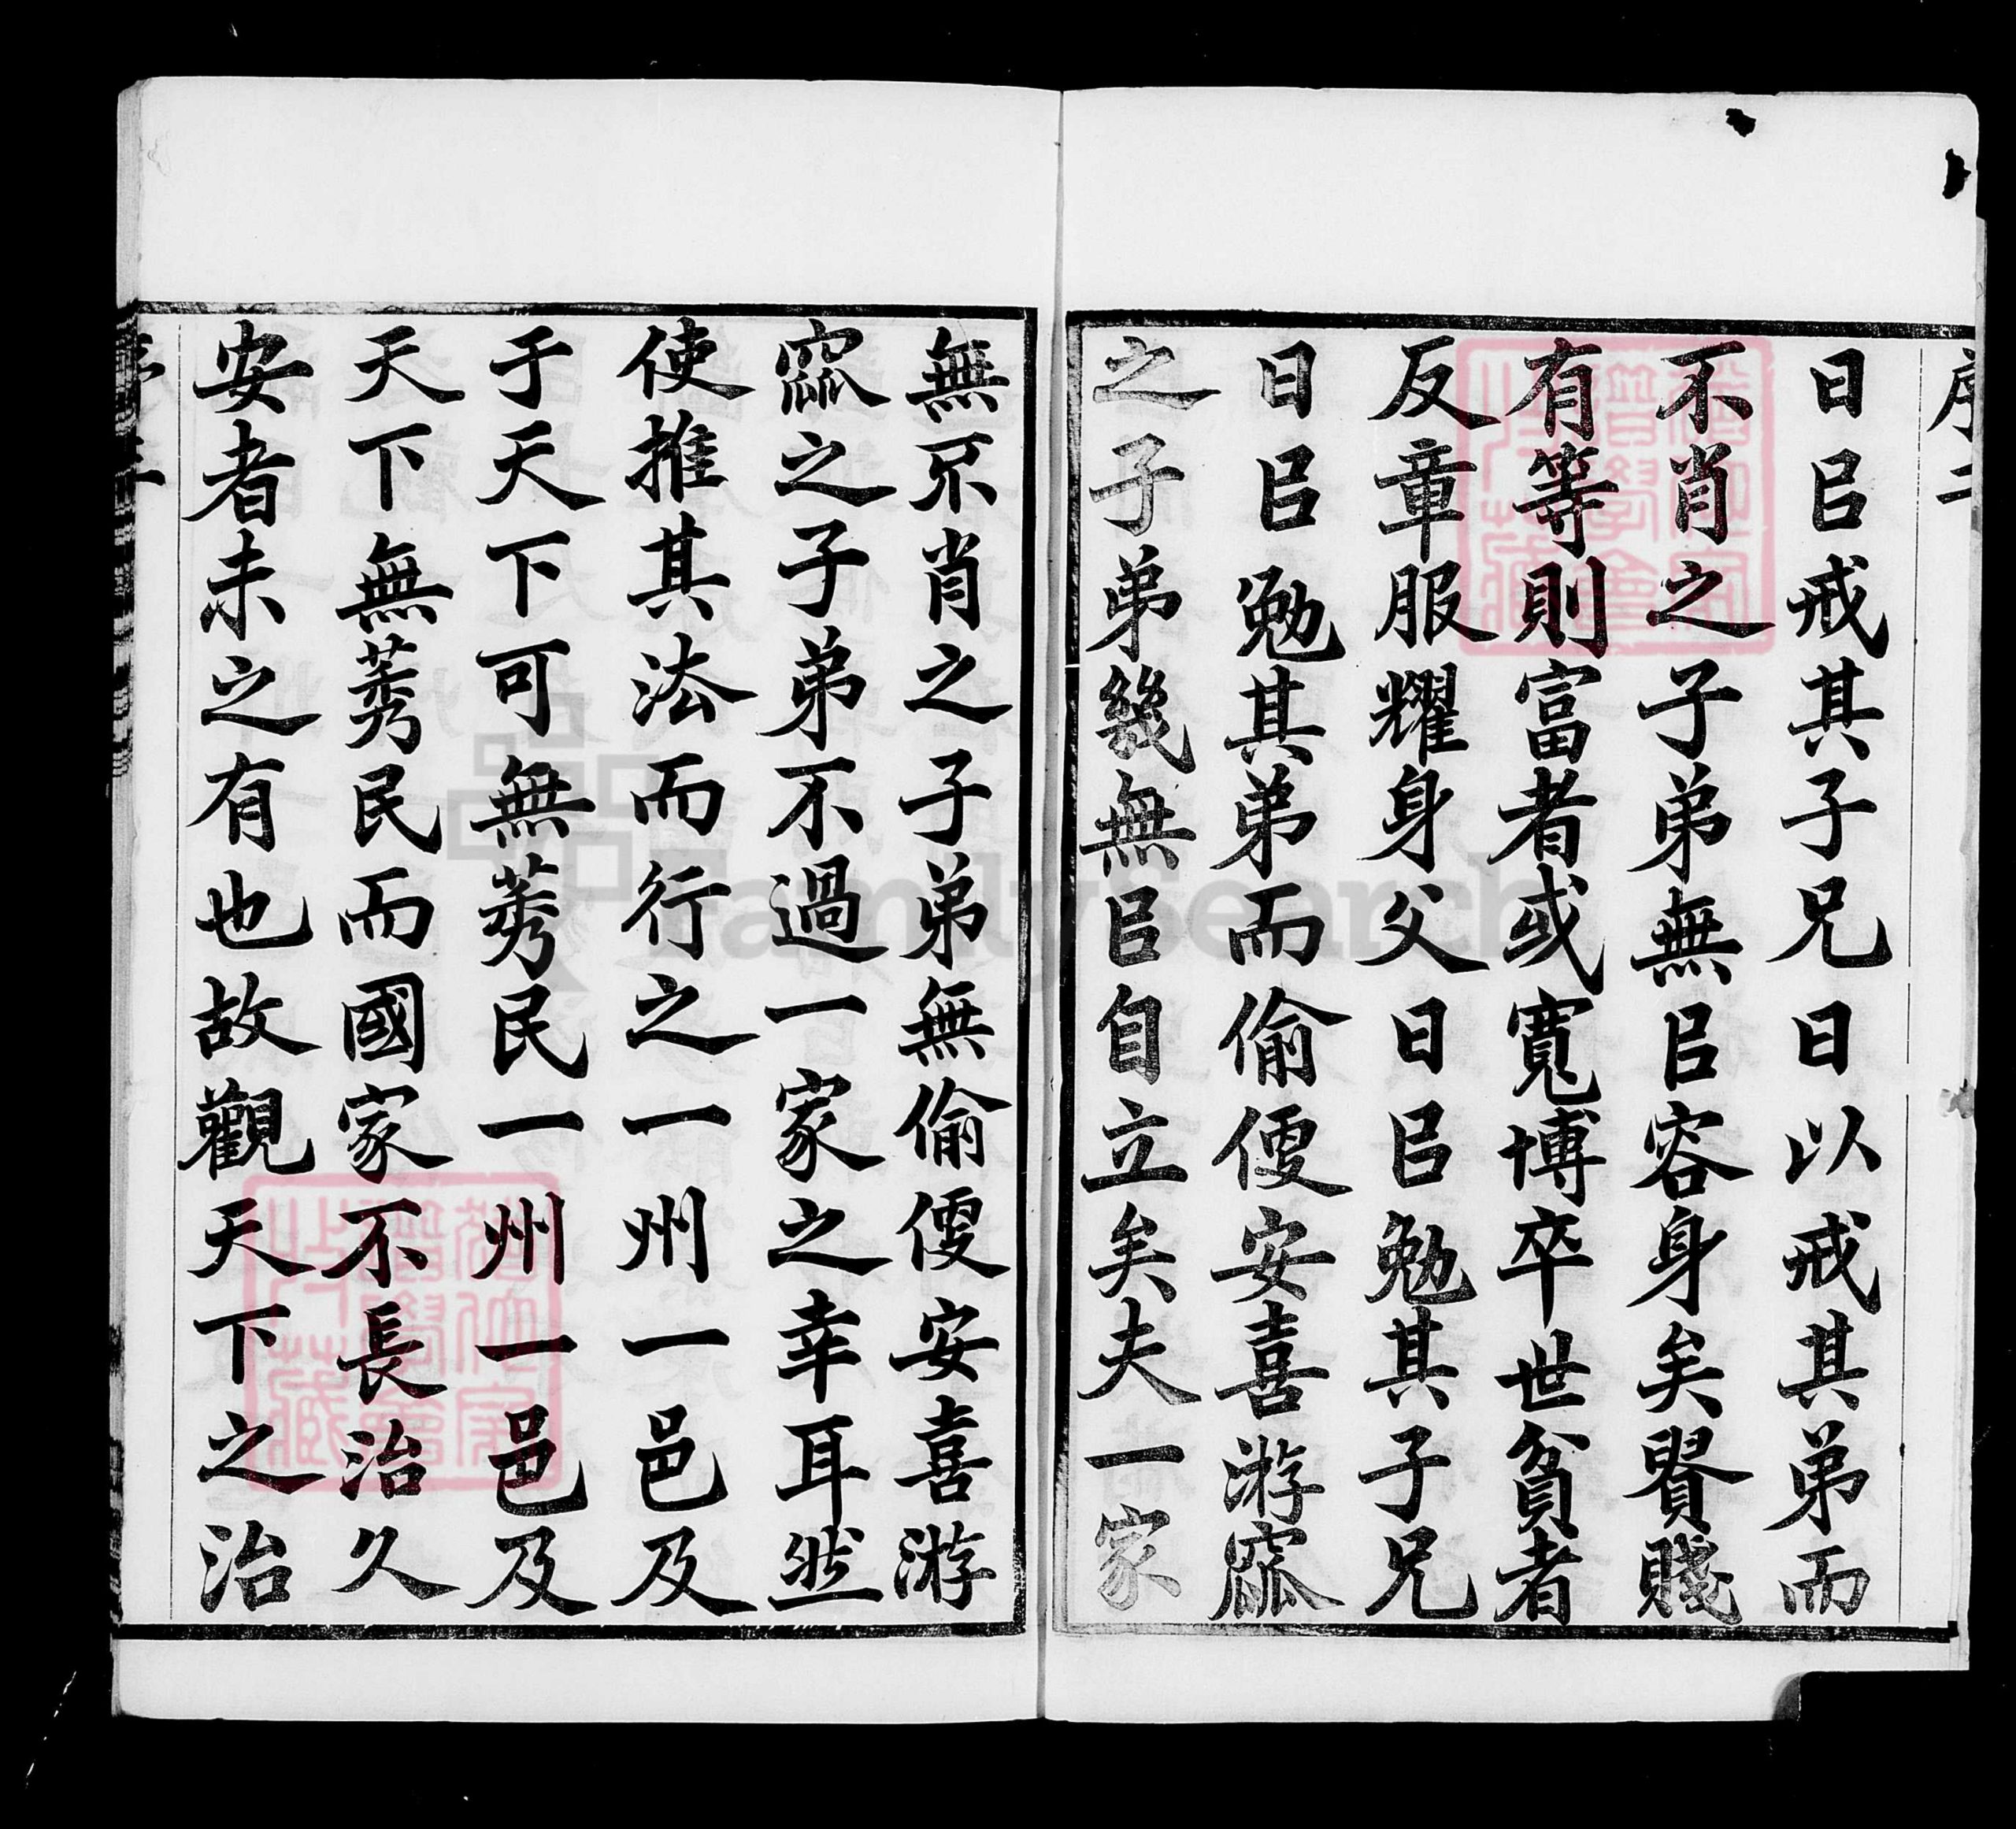 序二
日㠯戒其子兄日以戒其弟而
不肖之子弟無㠯容身矣貴賤
有等則富者或寬博卒世貧者
反章服耀身父日㠯勉其子兄
日㠯勉其弟而偷便安喜游窳
之子弟幾無㠯自立矣夫一家
無不肖之子弟無偷便安喜游
窳之子弟不過一家之幸耳然
使推其法而行之一州一邑及
于天下可無莠民一州一邑及
天下無莠民而國家不長治久
安者未之有也故觀天下之治
FamilySearch